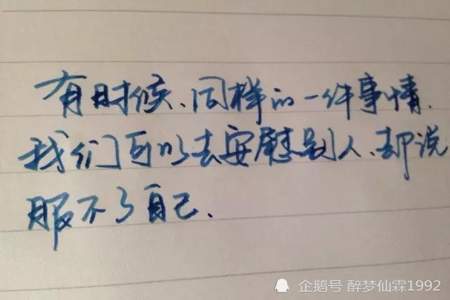 有时候、同样的一件事情.
我们可以去安慰别人、却说
服不了自己.
企鹅号 醉梦仙霖1992